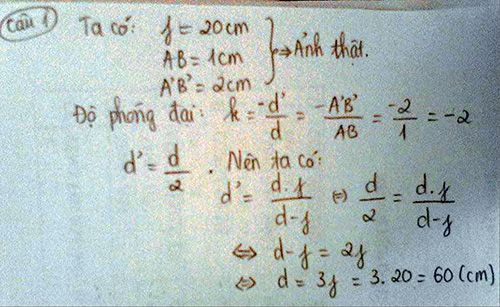 Câu 1
Ta có: f = 20cm
AB = 1cm
A'B' = 2cm
} ⇒ Ảnh thật.
Độ phóng đại: k = -d'/d = -A'B'/AB = -2/1 = -2
d' = d/2 . Nên ta có:
d' = d.f/d-f ⇔ d/2 = d.f/d-f
⇔ d-f = 2f
⇔ d = 3f = 3.20 = 60 (cm)